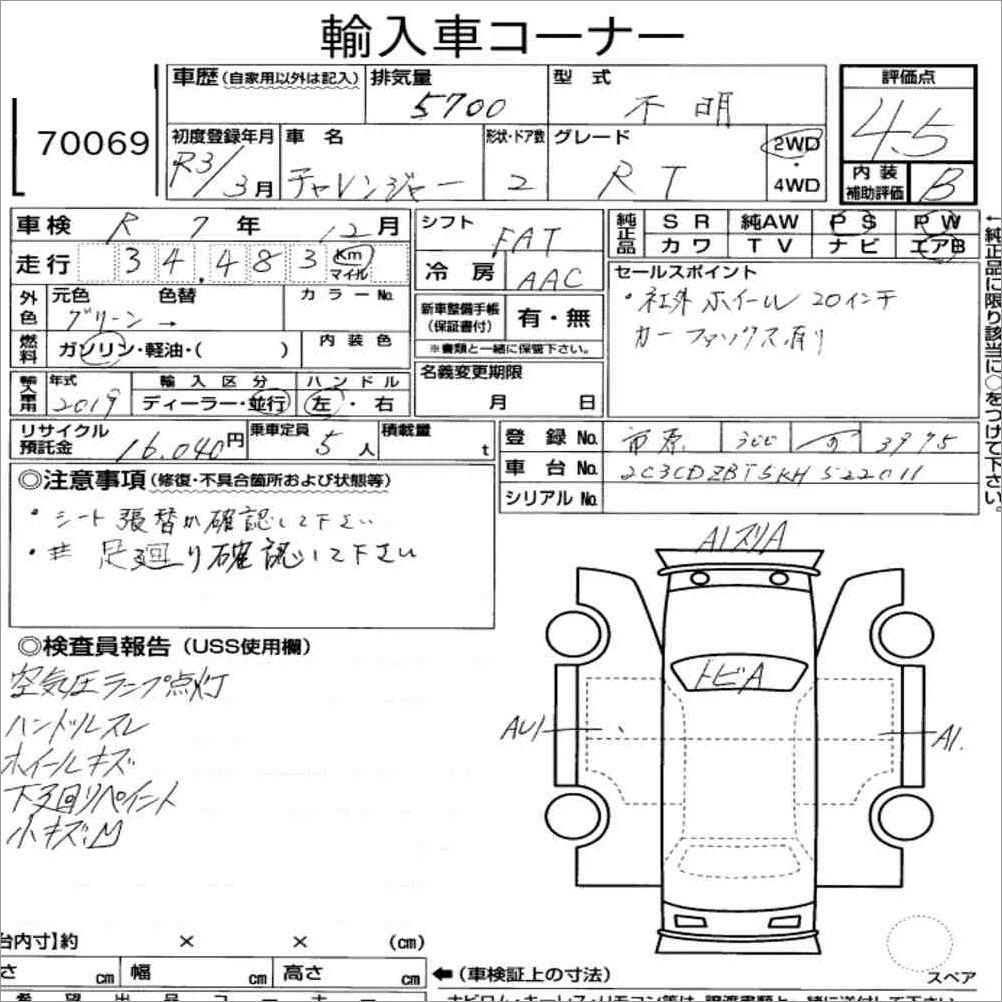 輸入車コーナー
70069
車歴(自家用以外は記入)
排気量 5700
型式 不明
評価点 4.5
初度登録年月 R3/3月
車名 チャレンジャー
形状・ドア数 2
グレード RT
2WD・4WD
内装補助評価 B
車検 R 7年 12月
シフト FAT
純正品 SR 純AW PS PW
カワ TV ナビ エアB
走行 34,483 Km マイル
冷房 AAC
セールスポイント
・社外ホイール 20インチ
カーファックス有り
外色 元色 グリーン→ 色替 カラーNo.
新車整備手帳(保証書付) 有・無
※書類と一緒に保管下さい。
燃料 ガソリン・軽油・( ) 内装色
輸入車用 年式 2019 輸入区分 ディーラー・並行 ハンドル 左・右
名義変更期限 月 日
←純正品に限り該当に○をつけて下さい。
リサイクル預託金 16,040円 乗車定員 5人 積載量 t
登録No. 市原 300 3975
車台No. 2C3CDZBT5KH522011
シリアルNo.
◎注意事項(修復・不具合箇所および状態等)
・シート張替か確認して下さい
・# 足廻り確認して下さい
◎検査員報告(USS使用欄)
空気圧ランプ点灯
ハンドルスレ
ホイールキズ
下回りペイント
小キズ:M
A1スリA
トビA
AU1
A1.
台内寸】約 × × (cm)
さ cm 幅 cm 高さ cm
←(車検証上の寸法)
スペア
希望出品コーナー